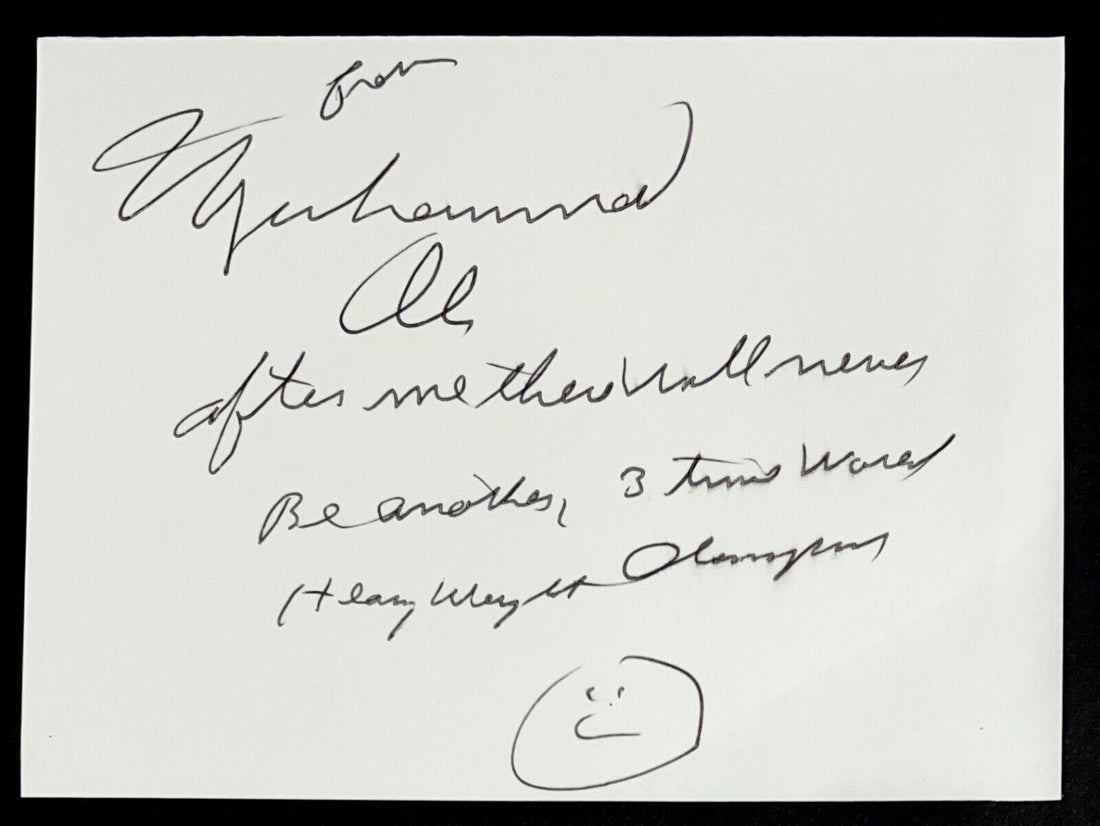 from
Muhammad
Ali
after me ther will never
Be another, 3 time World
Heavy Weight Champion